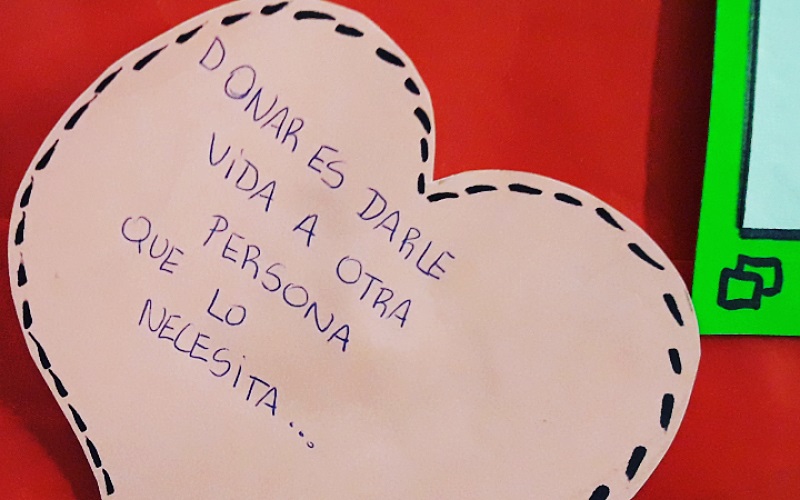 DONAR ES DARLE
ViDA A OTRA
PERSONA
QUE LO
NECESiTA...